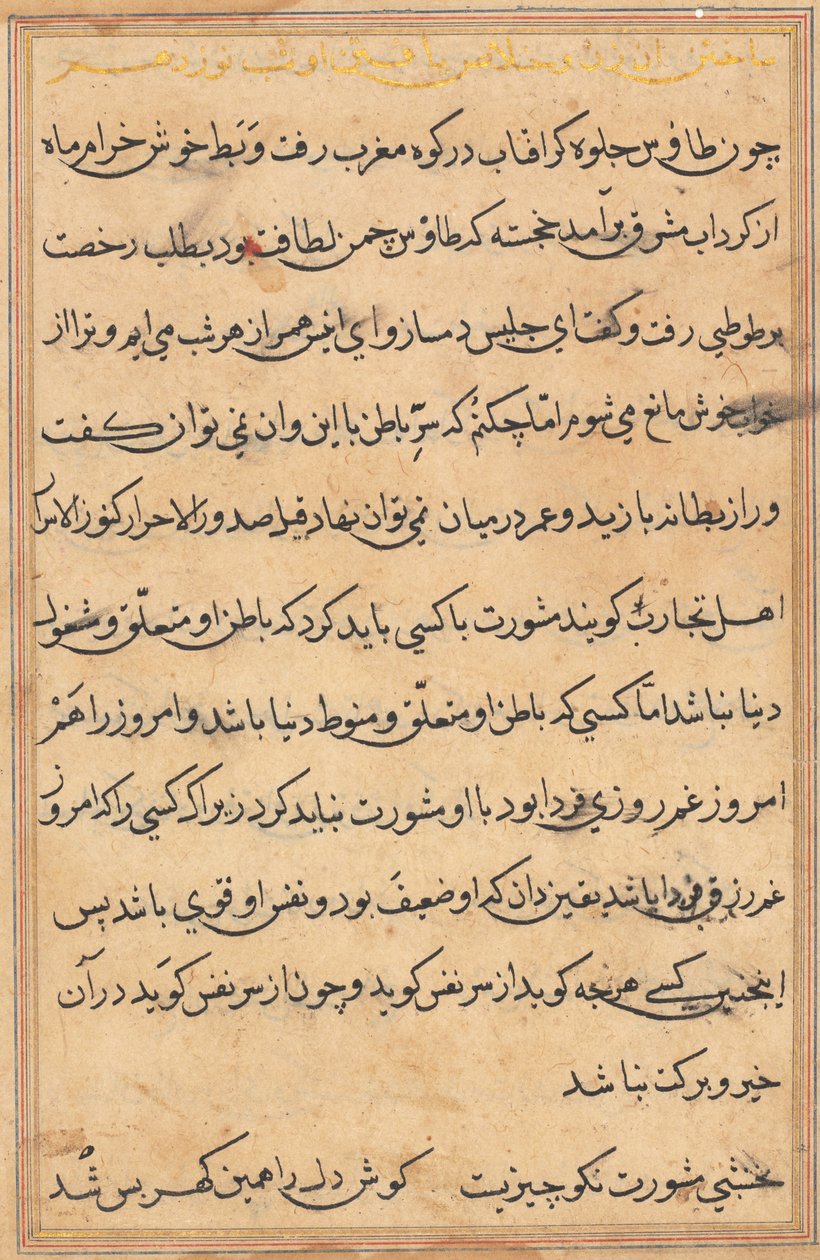 ساختن ان زن و خلاص یافتن او شب نوزدهم
چون طاؤس جلوه کر افتاب در کوه مغرب رفت وَبَط خوش خرام ماه
از کرداب مشرق برآمد خجسته که طاؤس چمن لطافت بود بطلب رخصت
بر طوطي رفت و کفت اي جلیس دمساز و اي انیس همراز هر شب مي ایم و ترا از
خواب خوش مانع مي شوم امّا چکنمُ که سرِّ باطن با این وان نمي توان کفت
و راز بطانه با زید و عمر درمیان نمي توان نهاد قیل صدور الاحرار کنوز الاسرار
اهل تجارب کویند مشورت با کسي باید کرد که باطن او متعلّق و مشغول
دنیا نباشد امّا کسي که باطن او متعلّق و منوط دنیا باشد و امروز را هَمْ
امروز غم روزي فردا بود با او مشورت نباید کرد زیرا که کسي را که امروز
غم رزق فردا باشد یقین دان که او ضعیفَ بود و نفس او قوّي باشد پس
اینچنین کسے هرچه کوید از سر نفس کوید و چون از سر نفس کوَید در آن
خیر و برکت نباشد
نخشبي مشورت نکو چیزیست کوش دل را همین کهر بس شُد